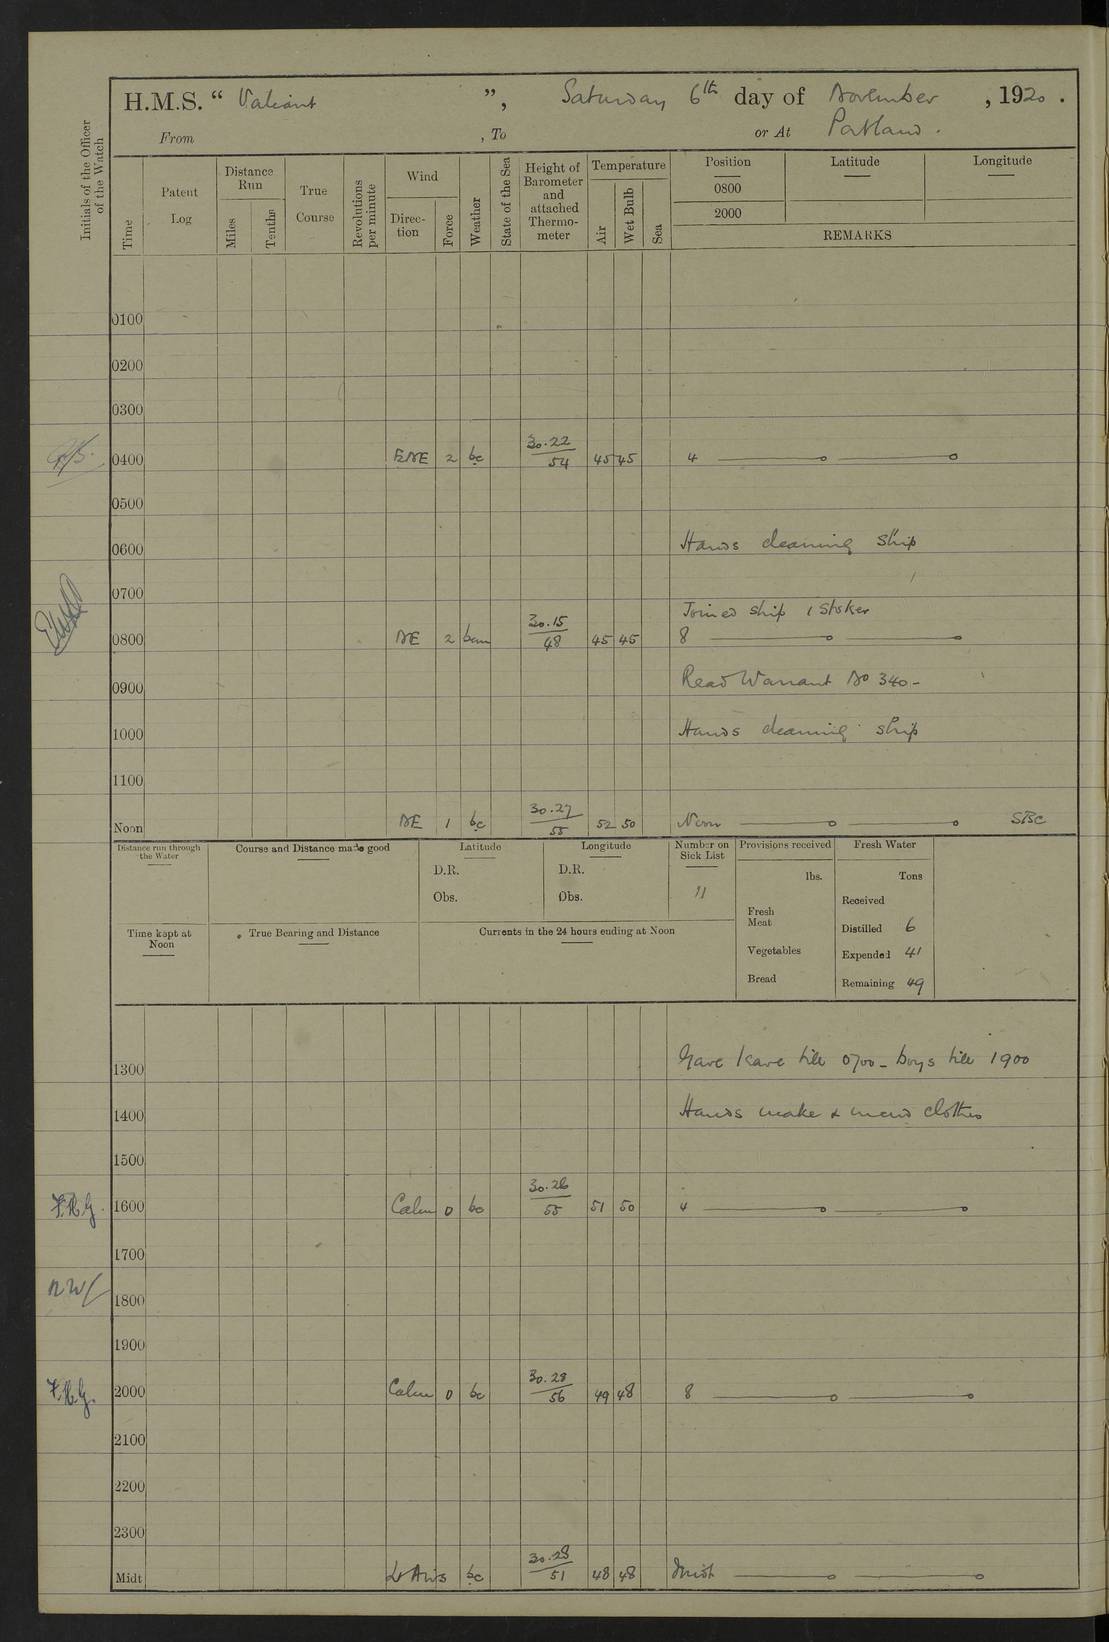 H.M.S. “ Valiant ”, Saturday 6th day of November , 1920 .
From , To or At Portland .
Initials of the Officer of the Watch
Time
Patent Log
Distance Run
Miles
Tenths
True Course
Revolutions per minute
Wind
Direc- tion
Force
Weather
State of the Sea
Height of Barometer and attached Thermo- meter
Temperature
Air
Wet Bulb
Sea
Position Latitude Longitude
0800
2000
REMARKS
0100
0200
0300
0400 ENE 2 bc 30.22/54 45 45 4
0500
0600 Hands cleaning ship
0700
Joined ship 1 Stoker
0800 NE 2 30.15/48 45 45 8
0900 Read Warrant No 340 -
1000 Hands cleaning ship
1100
Noon NE 1 bc 30.27/55 52 50 Noon SBC
Distance run through the Water
Course and Distance made good
Latitude
D.R.
Obs.
Longitude
D.R.
Obs.
Number on Sick List
11
Provisions received
lbs.
Fresh Meat
Vegetables
Bread
Fresh Water
Tons
Received
Distilled 6
Expended 41
Remaining 49
Time kept at Noon
True Bearing and Distance
Currents in the 24 hours ending at Noon
1300 Gave leave till 0700 - boys till 1900
1400 Hands make & mend clothes
1500
F.H.G. 1600 Calm 0 bc 30.26/55 51 50 4
1700
1800
1900
F.H.G. 2000 Calm 0 bc 30.28/56 49 48 8
2100
2200
2300
Midt Lt Airs bc 30.28/51 48 48 Midt